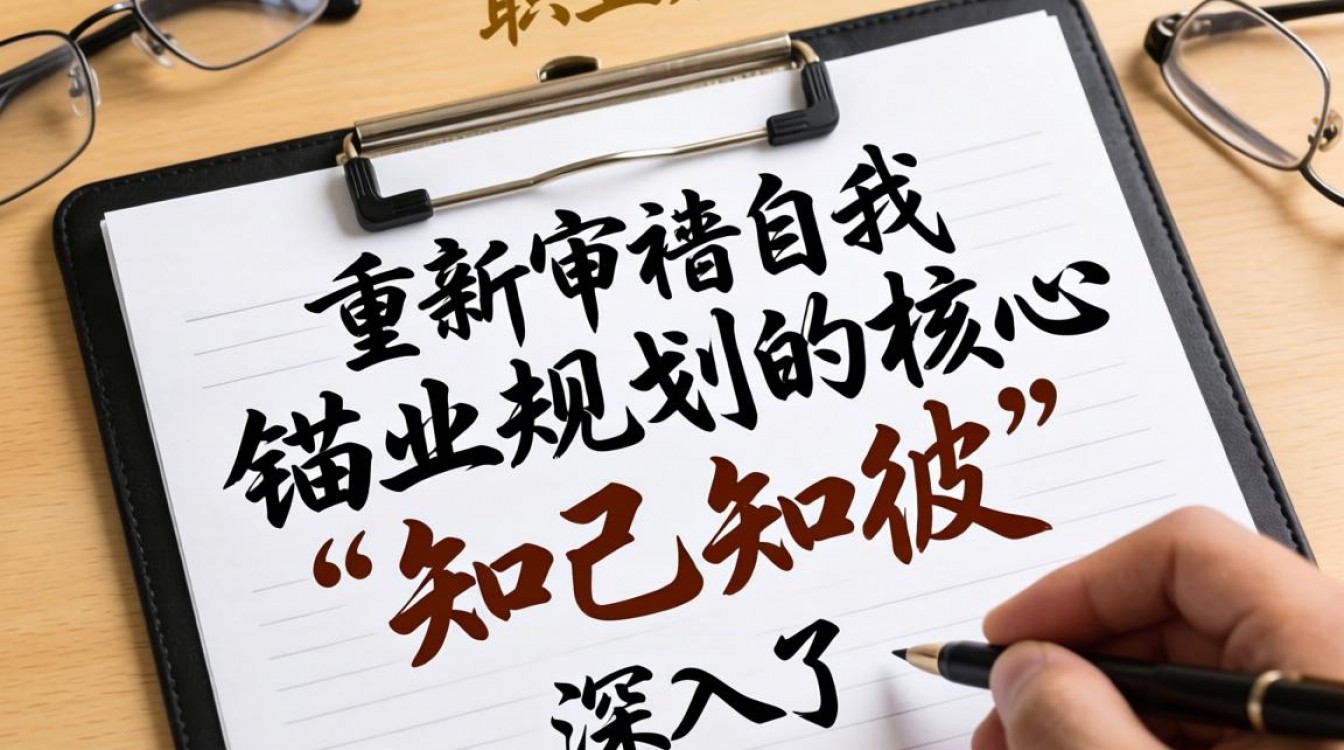 职业
重新审自我
锚业规划的核心
“知己知彼”
深入了